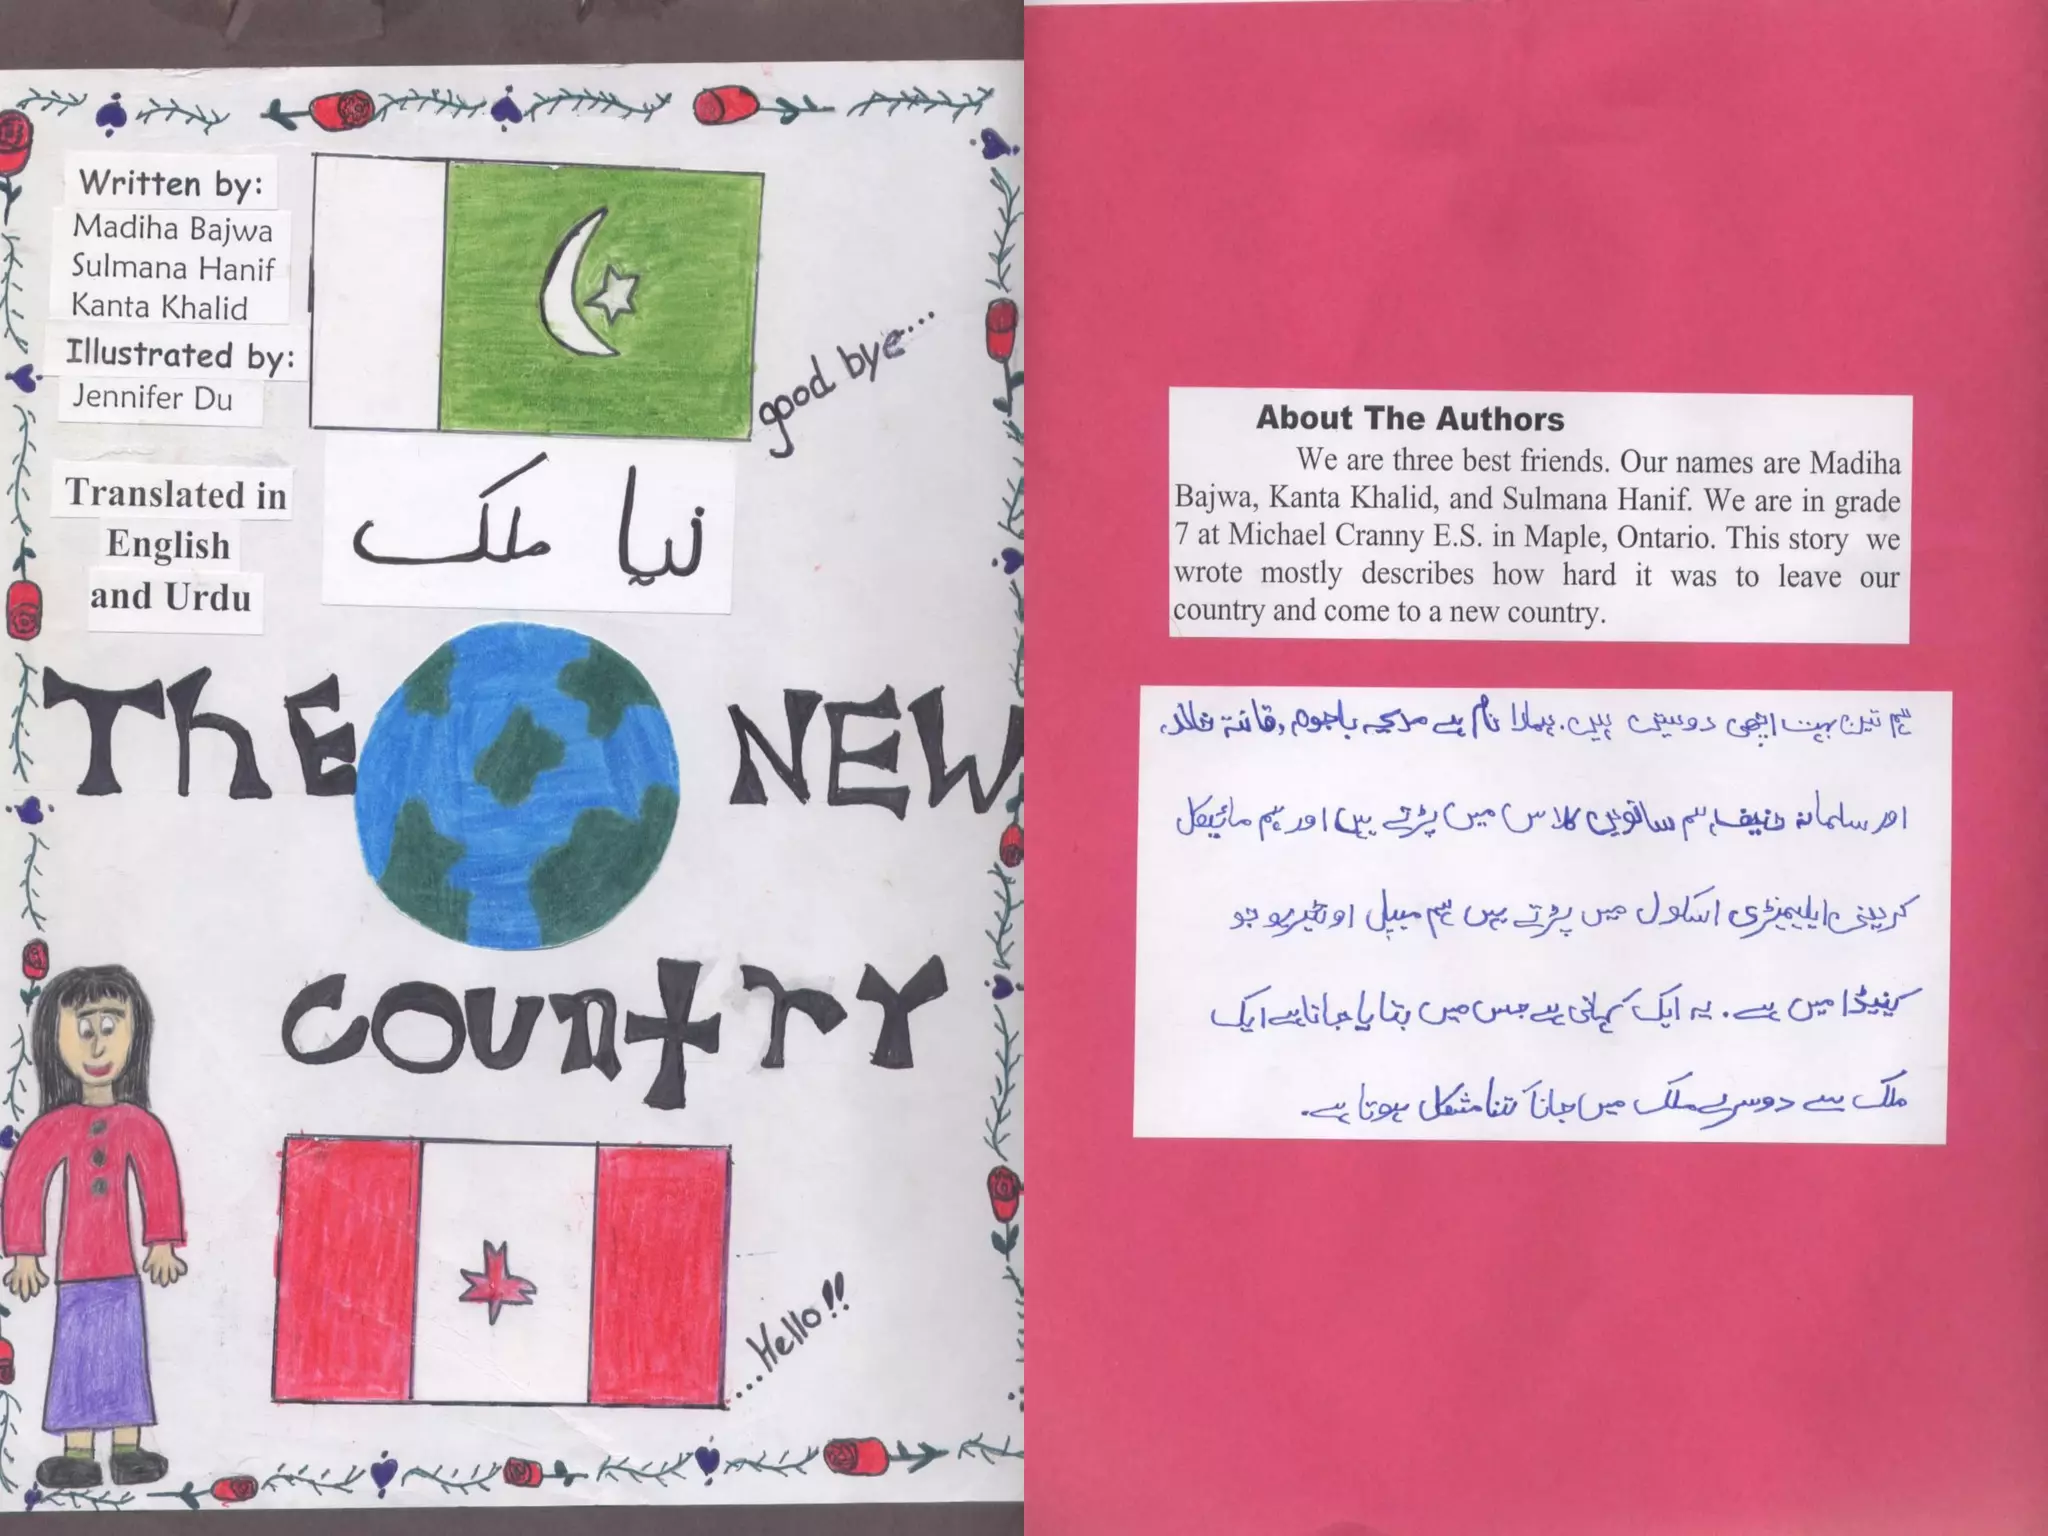 Written by:
Madiha Bajwa
Sulmana Hanif
Kanta Khalid
Illustrated by:
Jennifer Du
Translated in
English
and Urdu
good bye...
نیا ملک
THE NEW
COUNTRY
....Hello!!
About The Authors
We are three best friends. Our names are Madiha
Bajwa, Kanta Khalid, and Sulmana Hanif. We are in grade
7 at Michael Cranny E.S. in Maple, Ontario. This story we
wrote mostly describes how hard it was to leave our
country and come to a new country.
ہم تین بہت اچھی دوستیں ہیں. ہمارا نام ہے مدیحہ باجوہ, قانتہ خالد,
اور سلمانہ حنیف, ہم ساتویں کلاس میں پڑتے ہیں اور ہم مائیکل
کرینی ایلیمنٹری اسکول میں پڑتے ہیں ہم میپل اونٹیریو جو
کینیڈا میں ہے. یہ ایک کہانی ہے جس میں بتایا جاتا ہے ایک
ملک سے دوسرے ملک میں جانا کتنا مشکل ہوتا ہے.